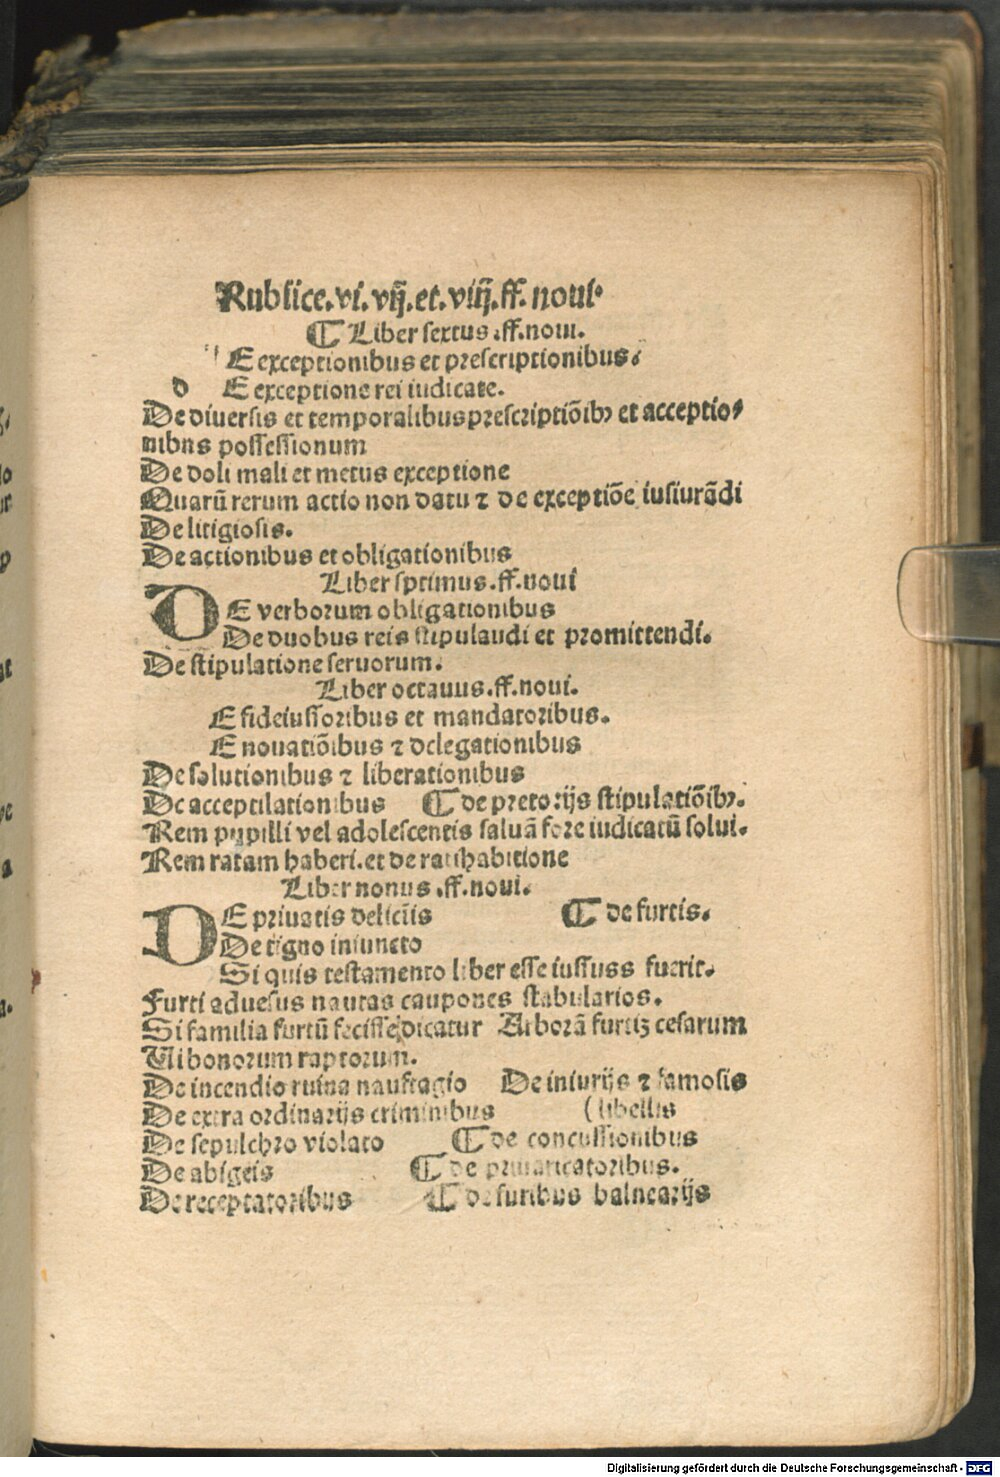 Rubrice.vi.vij.et.viij.ff.noui.
¶ Liber sextus.ff.noui.
E exceptionibus et prescriptionibus.
d E exceptione rei iudicate.
De diuersis et temporalibus prescriptiōibꝰ et acceptio⸗
nibus possessionum
De doli mali et metus exceptione
Quarū rerum actio non datu ⁊ de exceptiōe iusiurādi
De litigiosis.
De actionibus et obligationibus
Liber sptimus.ff.noui
DE verborum obligationibus
De duobus reis stipulaudi et promittendi.
De stipulatione seruorum.
Liber octauus.ff.noui.
E fideiussoribus et mandatoribus.
E nouatiōibus ⁊ delegationibus
De solutionibus ⁊ liberationibus
De acceptilationibus ¶ de pretorijs stipulatiōibꝰ.
Rem pupilli vel adolescentis saluā fore iudicatū solui.
Rem ratam haberi.et de ratihabitione
Liber nonus.ff.noui.
DE priuatis delictis ¶ de furtis.
De tigno iniuncto
Si quis testamento liber esse iussuss fuerit.
Furti aduesus nautas caupones stabularios.
Si familia furtū fecisse dicatur Arborā furtiꝫ cesarum
Ui bonorum raptorum.
De incendio ruina naufragio De iniurijs ⁊ famosis
De extra ordinarijs criminibus (libellis
De sepulchro violato ¶ de concussionibus
De abigeis ¶ de priuaricatoribus.
De receptatoribus ¶ de furibus balnearijs
Digitalisierung gefördert durch die Deutsche Forschungsgemeinschaft - DFG